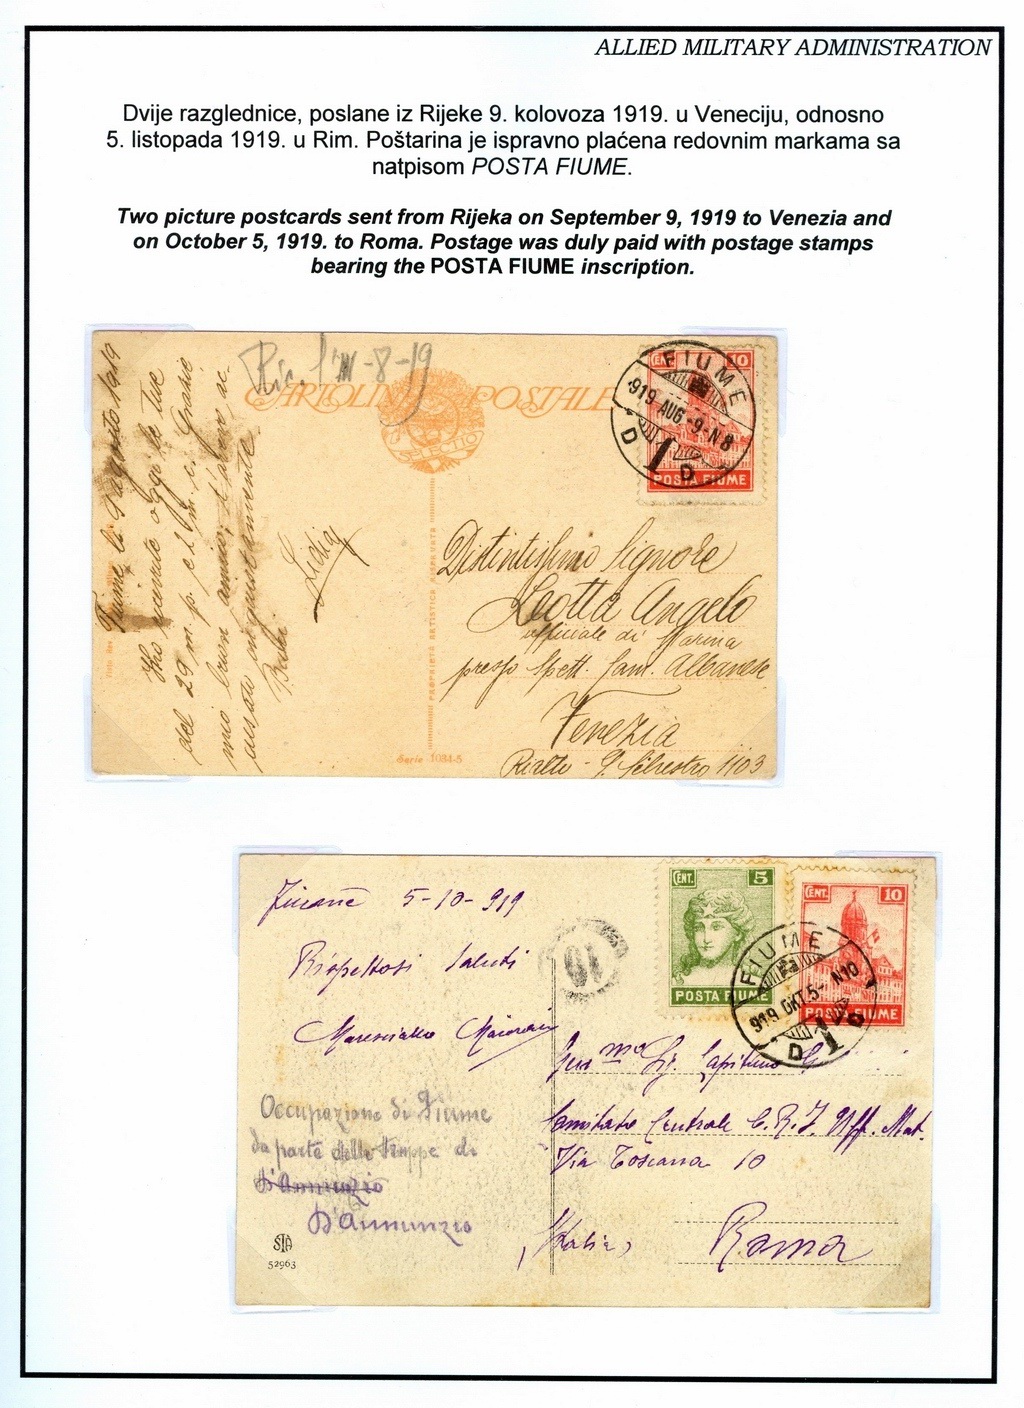 ALLIED MILITARY ADMINISTRATION
Dvije razglednice, poslane iz Rijeke 9. kolovoza 1919. u Veneciju, odnosno
5. listopada 1919. u Rim. Poštarina je ispravno plaćena redovnim markama sa
natpisom POSTA FIUME.
Two picture postcards sent from Rijeka on September 9, 1919 to Venezia and
on October 5, 1919. to Roma. Postage was duly paid with postage stamps
bearing the POSTA FIUME inscription.
Ric. l' 11-8-19
CARTOLINA POSTALE
SELECTIO
10
POSTA FIUME
FIUME
919 AUG -9-N8
D 1 D
Fiume li 9 agosto 1919
Ho ricevute oggi le tue
del 29 m. p. e 1 m. c. Grazie
mio buon amico, d'aver ac
ingiustamente
Lidia
PROPRIETÀ ARTISTICA RISERVATA
Serie 1034-5
Distintissimo Signore
Leotta Angelo
ufficiale di Marina
presso Spett. fam. Albanese
Venezia
Rialto - S. Silvestro 1103
CENT. 5
POSTA FIUME
CENT. 10
POSTA FIUME
FIUME
919 OKT 5- N10
D 1 D
10
Fiume 5-10-919
Rispettosi saluti
Maresciallo
Occupazione di Fiume
da parte delle truppe di
D'Annunzio
D'Annunzio
STA
52963
Sig. Capitano
Comitato Centrale C.R.I. Uff. Mat.
Via Toscana 10
(Italia)
Roma